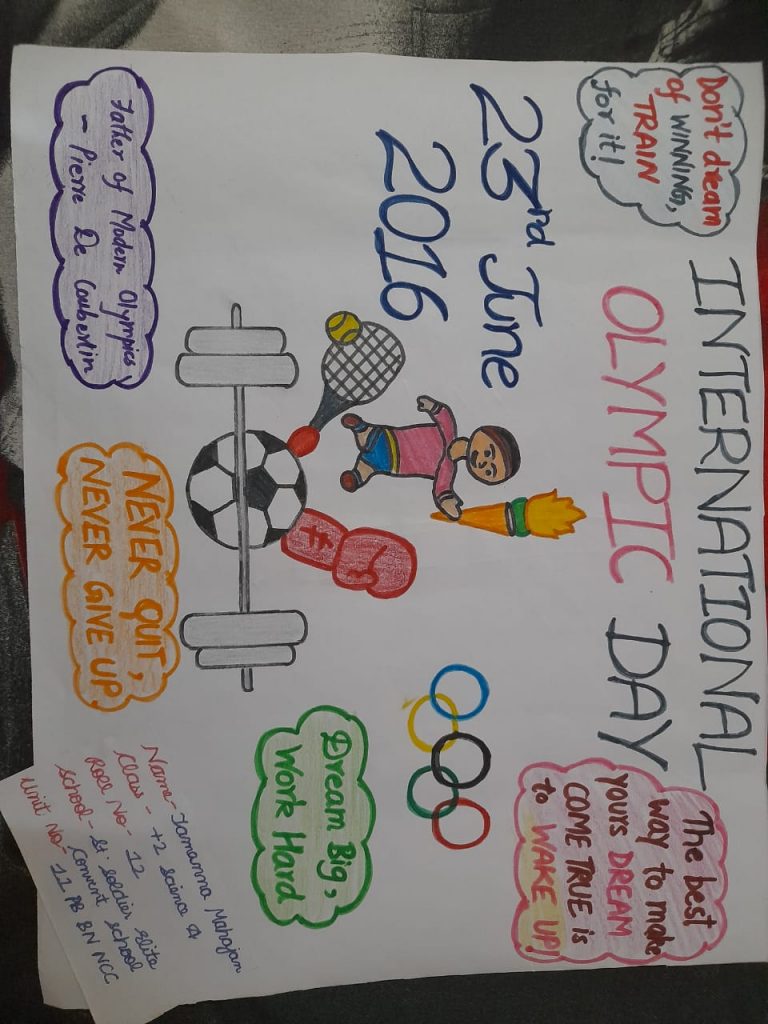 Don't dream
of WINNING,
TRAIN
for it!
INTERNATIONAL
OLYMPIC DAY
The best
way to make
yours DREAM
COME TRUE is
to WAKE UP!
23rd June
2016
Dream Big,
Work Hard
Father of Modern Olympics,
- Pierre De Coubertin
NEVER QUIT,
NEVER GIVE UP
Name- Tamanna Mahajan
Class - +2 Science A
Roll No- 12
School- St. Soldier Elite
Convent School
Unit No- 11 PB BN NCC